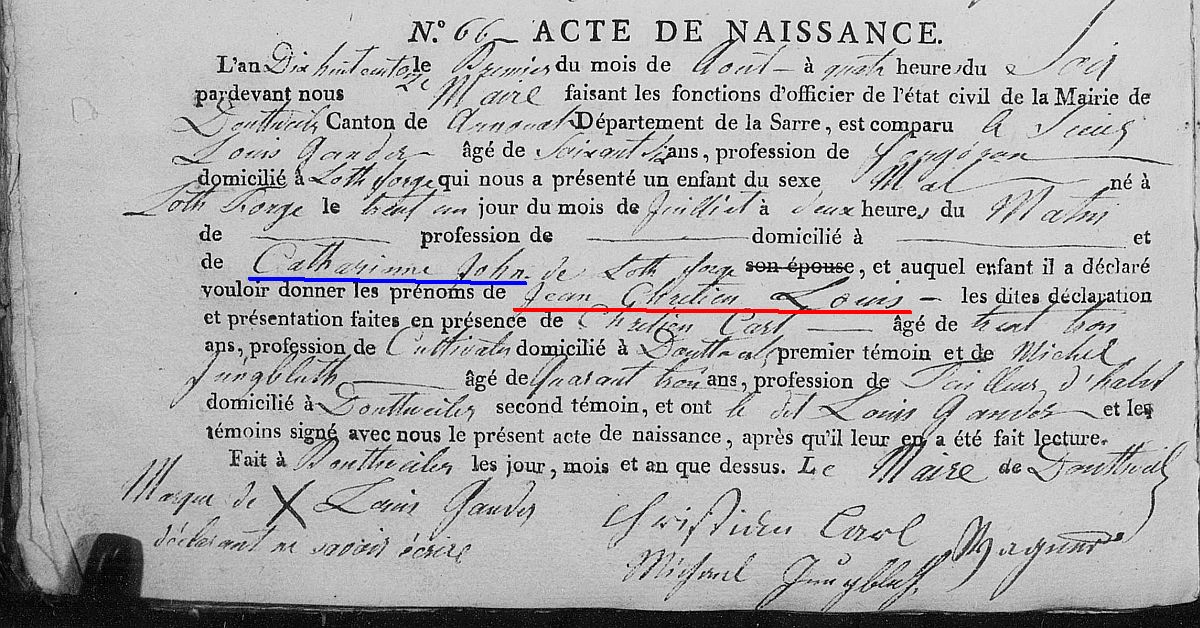 N.º 66 ACTE DE NAISSANCE.
L'an Dix huit cent le Premier du mois de Aout à quatr heures du Soir
pardevant nous Maire faisant les fonctions d'officier de l'état civil de la Mairie de
Douttweiler Canton de Département de la Sarre, est comparu
Louis Gander âgé de Soixant ans, profession de
domicilié à Loth forge qui nous a présenté un enfant du sexe Mal né à
Loth Forge le trent un jour du mois de Juilliet à deux heures du Matin
de profession de domicilié à et
de Catharinne John de Loth forge son épouse, et auquel enfant il a déclaré
vouloir donner les prénoms de Jean Chretien Louis les dites déclaration
et présentation faites en présence de Chretien Carl âgé de trent trois
ans, profession de Cultivateur domicilié à premier témoin et de Michel
Jungbluth âgé de Quarant trois ans, profession de Tailleur d'habit
domicilié à Douttweiler second témoin, et ont le dit Louis Gander et les
témoins signé avec nous le présent acte de naissance, après qu'il leur en a été fait lecture.
Fait à Douttweiler les jour, mois et an que dessus. Le Maire de Douttweil
Marque de X Louis Gander
déclarant ne savoir écrire
Christian Carl
Wagner
Michael Jungbluth